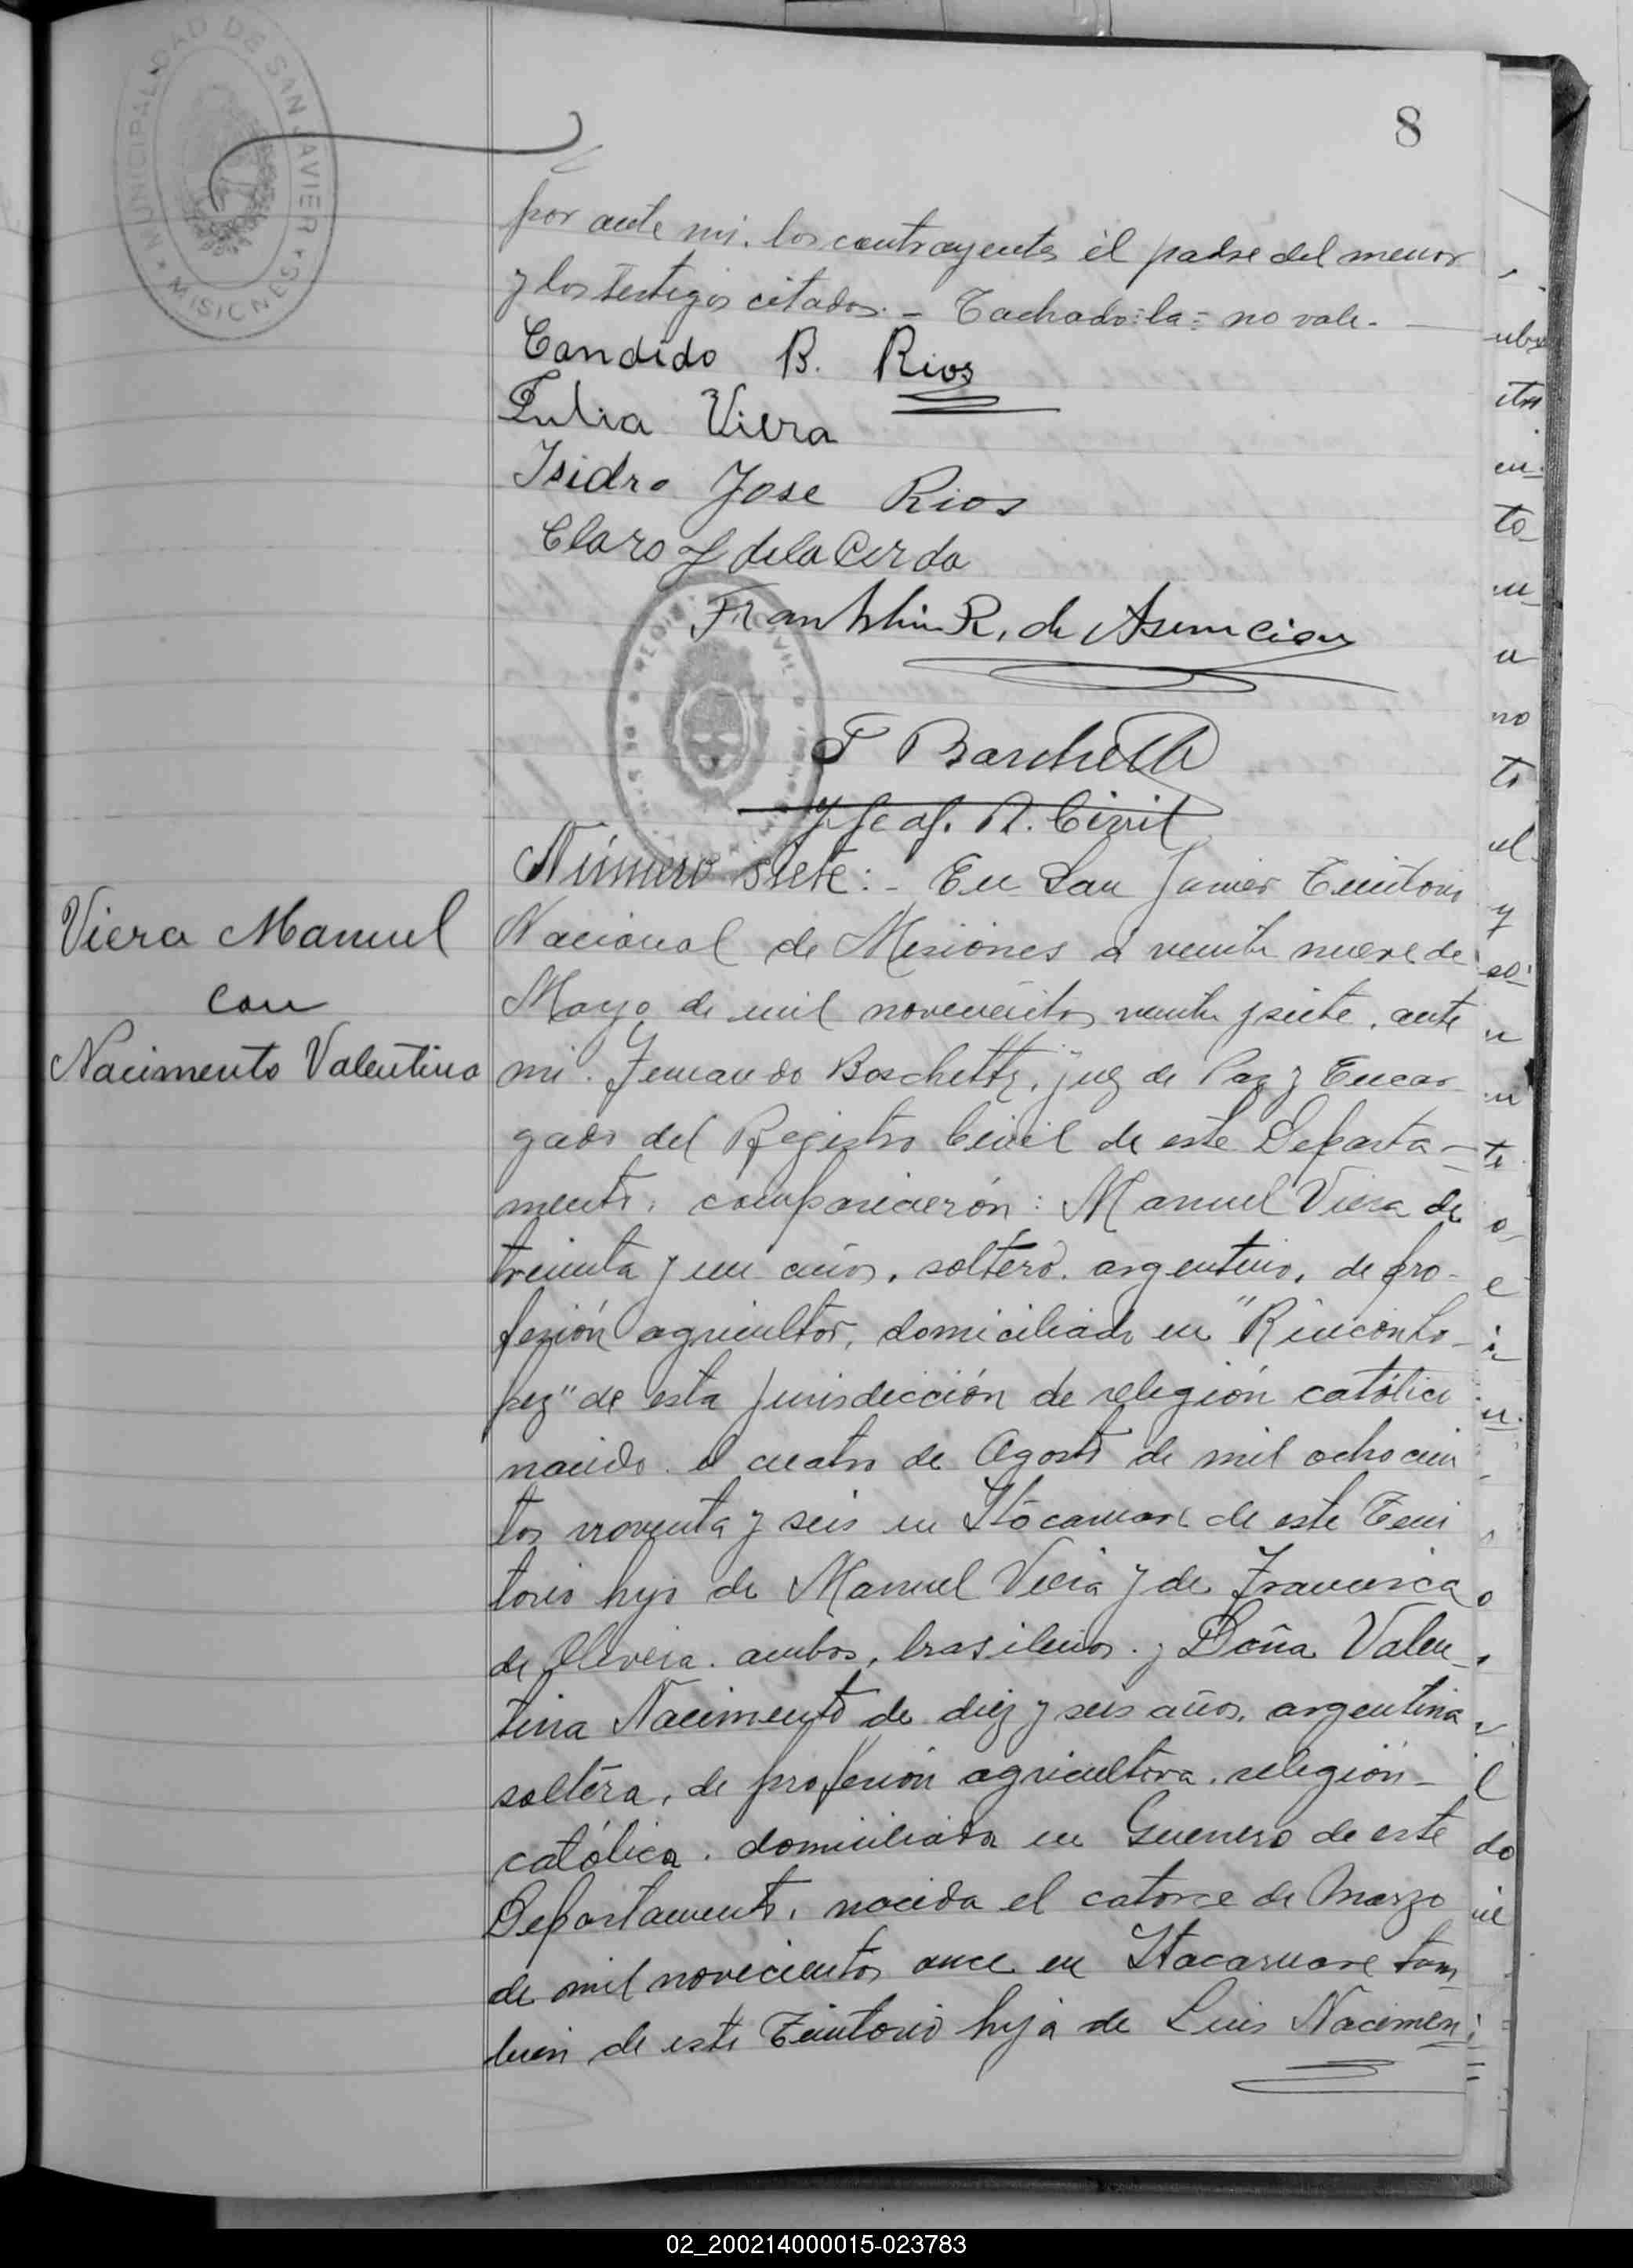 MUNICIPALIDAD DE SAN JAVIER
MISIONES
8
por ante mi. los contrayentes él padre del menor
y los testigos citados.- Tachado: la = no vale.-
Candido B. Rios
Julia Viera
Isidro Jose Rios
Claro J de la Cerda
Franklin R. de Asuncion
F Boschetti
Jefe of. R. Civil
Viera Manuel
con
Nacimento Valentina
Número siete:- En San Javier Territorio
Nacional de Misiones a veinte nueve de
Mayo de mil novecientos veinte y siete. ante
mi. Fernando Boschetti, juez de Paz y Encar-
gado del Registro Civil de este Departa-
mento, comparicierón: Manuel Viera de
treinta y un años. soltero. argentino, de pro-
fesión agricultor, domiciliado en "Rincon Lo-
pez" de esta jurisdicción de religión católica
nacido el cuatro de Agosto de mil ochocien
tos noventa y seis en Itacaruare de este Terri
torio hijo de Manuel Vieia y de Francisca
de Oliveia. ambos, brasileños. y Doña Valen-
tina Nacimento de diez y seis años. argentina
soltéra, de profesión agricultora. religión-
católica. domiciliada en Guerrero de este
Departamento, nacida el catorce de Marzo
de mil novecientos once en Itacaruare tam
bien de este Territorio hija de Luis Nacimen
02_200214000015-023783